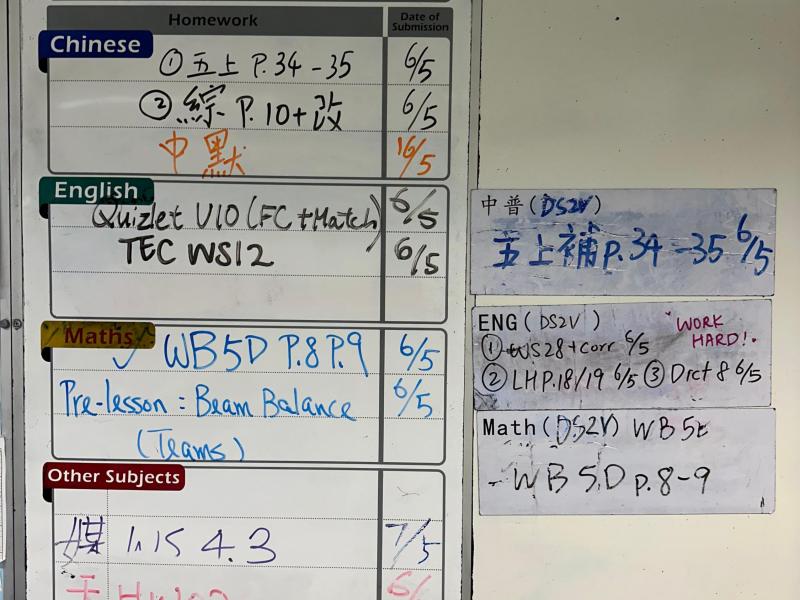 Homework
Date of Submission
Chinese
① 五上 P.34-35 6/5
② 綜 P.10+改 6/5
中默 16/5
English
Quizlet U10 (FC+Match) 6/5
TEC WS12 6/5
Maths
WB5D P.8 P.9 6/5
Pre-lesson: Beam Balance 6/5
(Teams)
Other Subjects
1.15 4.3 7/5
6/
中普(DS2V)
五上補p.34-35 6/5
ENG(DS2V) WORK HARD!
① WS28+corr 6/5
② LH P.18/19 6/5 ③ Dict 8 6/5
Math(DS2V) WB 5
- WB 5D p.8-9